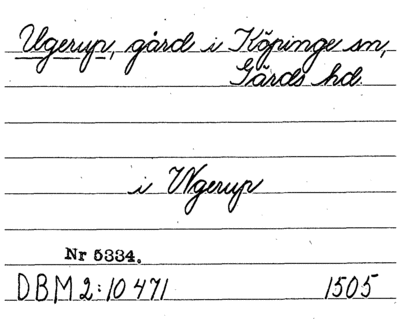 Ugerup, gård i Köpinge sn,
Gärds hd.
i Wgerup
Nr 5334.
DBM 2:10 471 1505